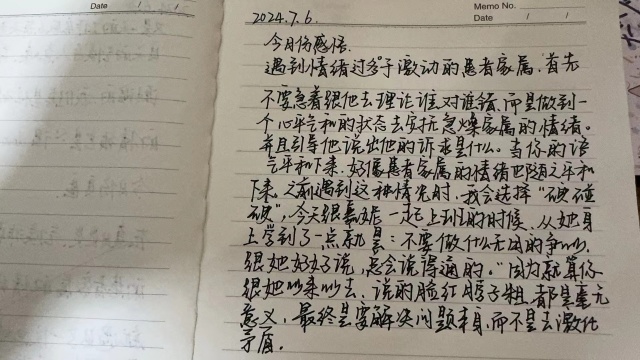 Date / /
Memo No.
Date / /
2024.7.6.
今月份感悟.
遇到情绪过多于激动的患者家属,首先
不要急着跟他去理论谁对谁错,而是做到一
个心平气和的状态去安抚急燥家属的情绪。
并且引导他说出他的诉求是什么。当你的语
气平和下来,好像患者家属的情绪也随之平和
下来,之前遇到这种情况时,我会选择“硬碰
硬”,今天跟嘉妮一起上班的时候,从她身
上学到了一点就是:不要做什么无因的争吵,
跟她好好说,总会说得通的。“因为就算你
跟她吵来吵去,说的脸红脖子粗,都是毫无
意义,最终是要解决问题本身,而不是去激化
矛盾。